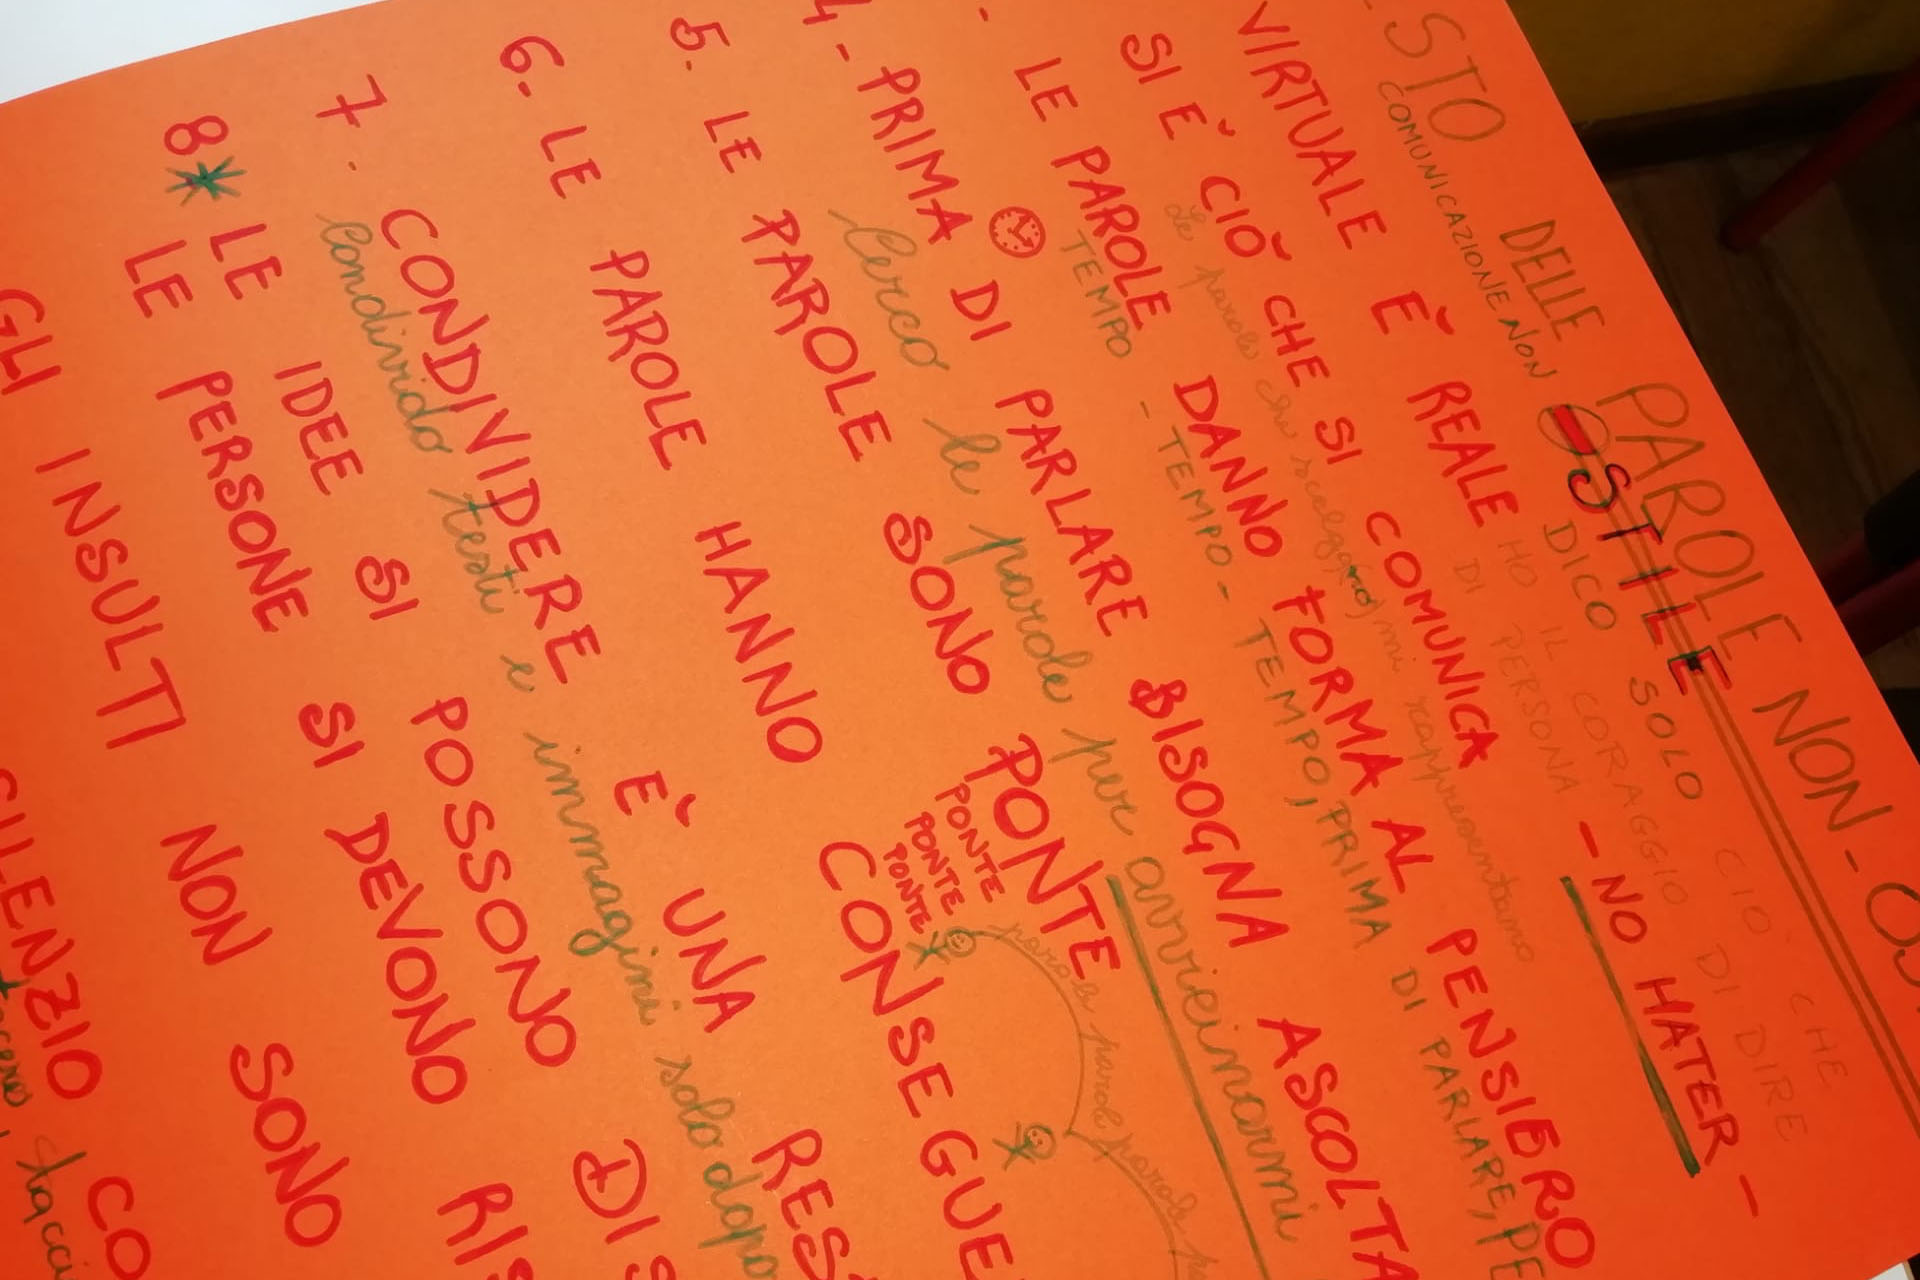 STO DELLE PAROLE NON-OS
COMUNICAZIONE NON OSTILE
DICO SOLO CIÒ CHE
HO IL CORAGGIO DI DIRE
DI PERSONA
VIRTUALE È REALE - NO HATER -
SI È CIÒ CHE SI COMUNICA
Le parole che scelgo mi rappresentano
LE PAROLE DANNO FORMA AL PENSIERO
TEMPO - TEMPO - TEMPO, PRIMA DI PARLARE, PE
4- PRIMA DI PARLARE BISOGNA ASCOLTA
Cerco le parole per avvicinarmi
5. LE PAROLE SONO PONTE
PONTE
PONTE
PONTE
parole parole parole parole parole
6. LE PAROLE HANNO CONSEGUE
7. CONDIVIDERE È UNA RES
Condivido testi e immagini solo dopo
8* LE IDEE SI POSSONO DIS
LE PERSONE SI DEVONO RIS
GLI INSULTI NON SONO
SILENZIO CO